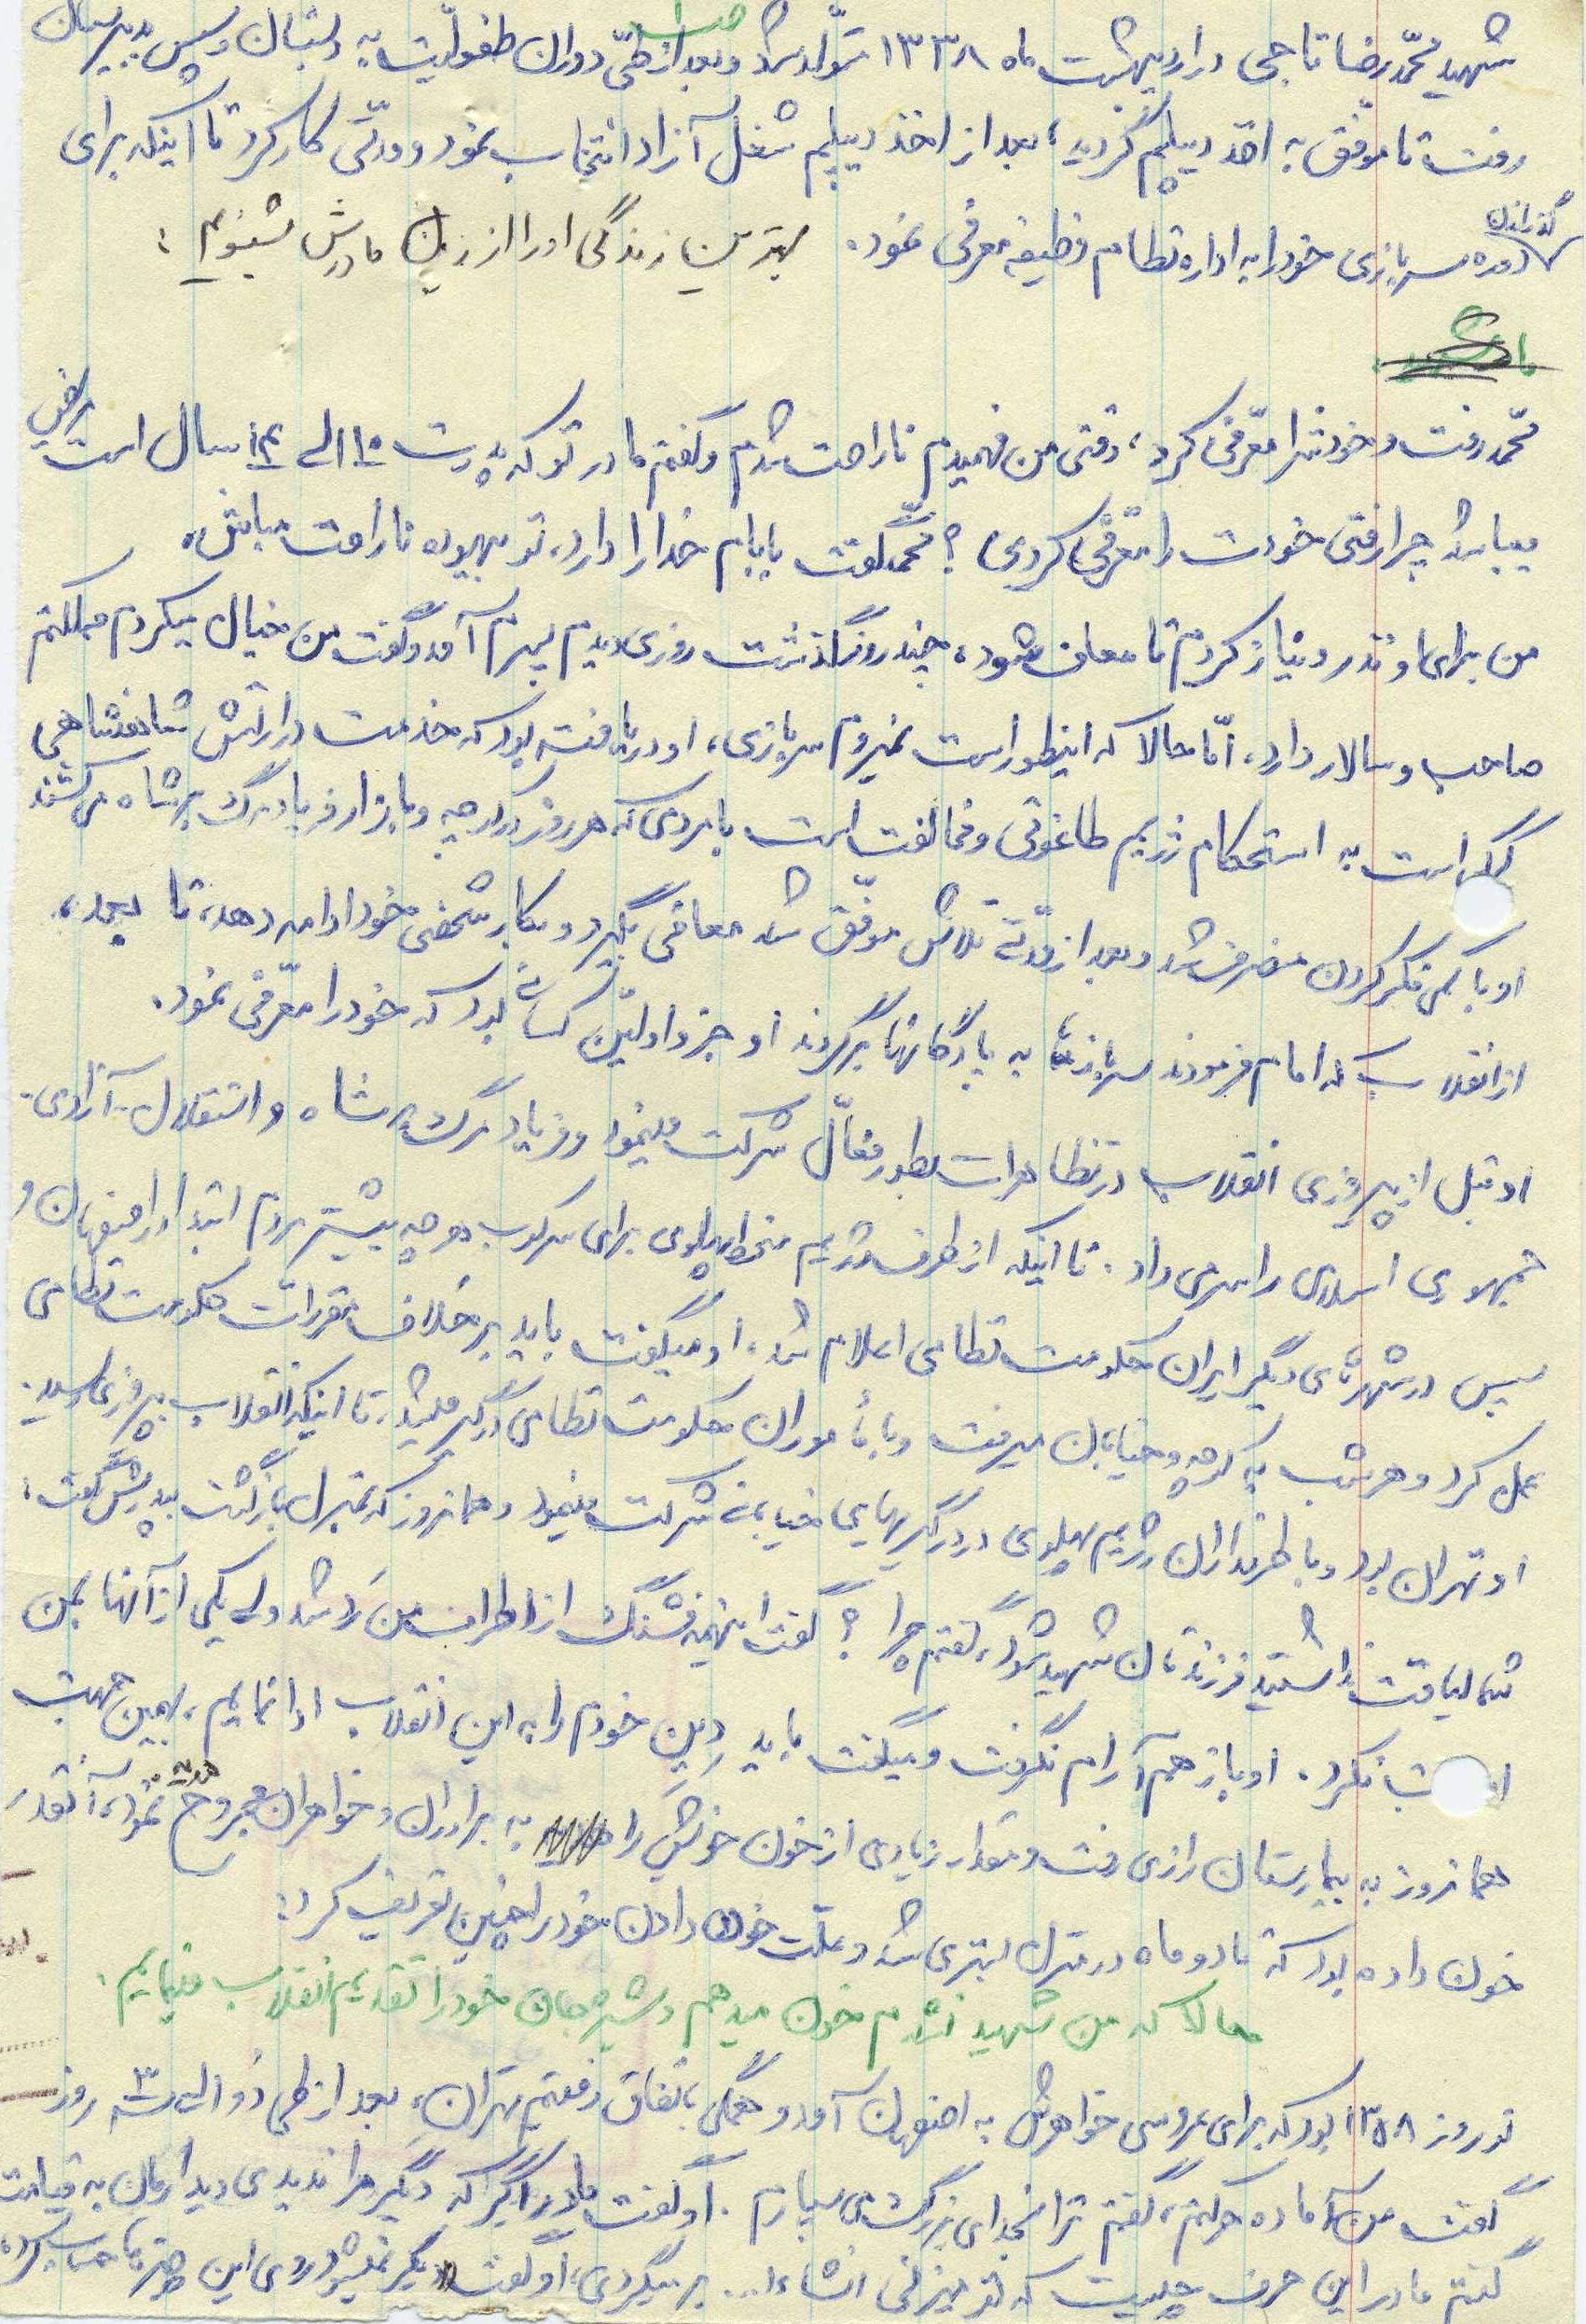 شهید محمّدرضا تاجی در اردیبهشت ماه ۱۳۳۸ متولّد شد و بعد از طیّ دوران طفولیّت به دبستان و سپس به دبیرستان
رفت تا موّفق به اخذ دیپلم گردید، بعد از اخذ دیپلم شغل آزاد انتخاب نمود و مدّتی کار کرد تا اینکه برای
گذراندن دوره سربازی خود را به اداره نظام وظیفه معرفی نمود. بهترین زندگی او را از زبان مادرش بشنویم :
محمّد رفت و خودش را معّرفی کرد، وقتی من فهمیدم ناراحت شدم و گفتم مادر تو که پدرت ۱۰ الی ۱۲ سال است مریض
میباشد چرا رفتی خودت را معّرفی کردی؟ محمّد گفت بابام خدا را دارد، تو بیهوده ناراحت نباش.
من برای او نذر و نیاز کردم تا معاف شود، چند روز گذشت روزی دیدم پسرم آمد و گفت من خیال میکردم مملکتم
صاحب و سالار دارد، امّا حالا که اینطور است نمیروم سربازی، او دریافته بود که خدمت در ارتش شاهنشاهی
کمک است به استحکام رژیم طاغوتی و مخالفت است با مردمی که هر روز در کوچه و بازار فریاد مرگ بر شاه می‌کشند
او با کمی فکر کردن منصرف شد و بعد از مدّتی تلاش موفّق شد معافی بگیرد و بکار شخصی خود ادامه دهد، تا بعد
از انقلاب که امام فرمودند سربازها به پادگانها برگردند او جزو اولیّن کسانی بود که خود را معّرفی نمود.
او قبل از پیروزی انقلاب در تظاهرات بطور فعاّل شرکت مینمود و فریاد مرگ بر شاه و استقلال - آزادی -
جمهوری اسلامی را سر می داد. تا اینکه از طرف رژیم منحط پهلوی برای سرکوب هر چه بیشتر مردم ابتدا در اصفهان و
سپس در شهرهای دیگر ایران حکومت نظامی اعلام شد، او میگفت باید بر خلاف مقررات حکومت نظامی
عمل کرد و هر شب به کوچه و خیابان میرفت و با مأموران حکومت نظامی درگیر میشد، تا اینکه انقلاب به پیروزی رسید.
او تهران بود و با طرفداران رژیم پهلوی در درگیریهایی خیابانی شرکت مینمود و همانروز که بمنزل بازگشت بپدرش گفت:
شما لیاقت نداشتید فرزندتان شهید شود، گفتم چرا؟ گفت اینهمه فشنگ از اطراف من رَد شد ولی یکی از آنها بمن
نکرد. او باز هم آرام نگرفت و میگفت باید دِین خودم را به این انقلاب ادا نمایم، بهمین جهت
همانروز به بیمارستان رازی رفت و مقدار زیادی از خون خویش را به برادران و خواهران مجروح هدیه نمود، آنقدر
خون داده بود که تا دو ماه در منزل بستری شد و علّت خون دادن خود را چنین تعریف کرد:
حالا که من شهید نشدم خون میدهم و شیره جان خود را تقدیم انقلاب مینمایم.
نوروز ۱۳۵۸ بود که برای عروسی خواهرش به اصفهان آمد و همگی باتفاق رفتیم تهران، بعد از طی دُو الی سه روز
گفت من آماده حرکتم، گفتم ترا بخدای بزرگ می سپارم. او گفت مادر اگر که دیگر مرا ندیدی دیدارمان به قیامت
گفتم مادر این حرف چیست که تو میزنی انشاءا... بر میگردی، او گفت دیگر نمیشود روی این چیزها حساب کرد